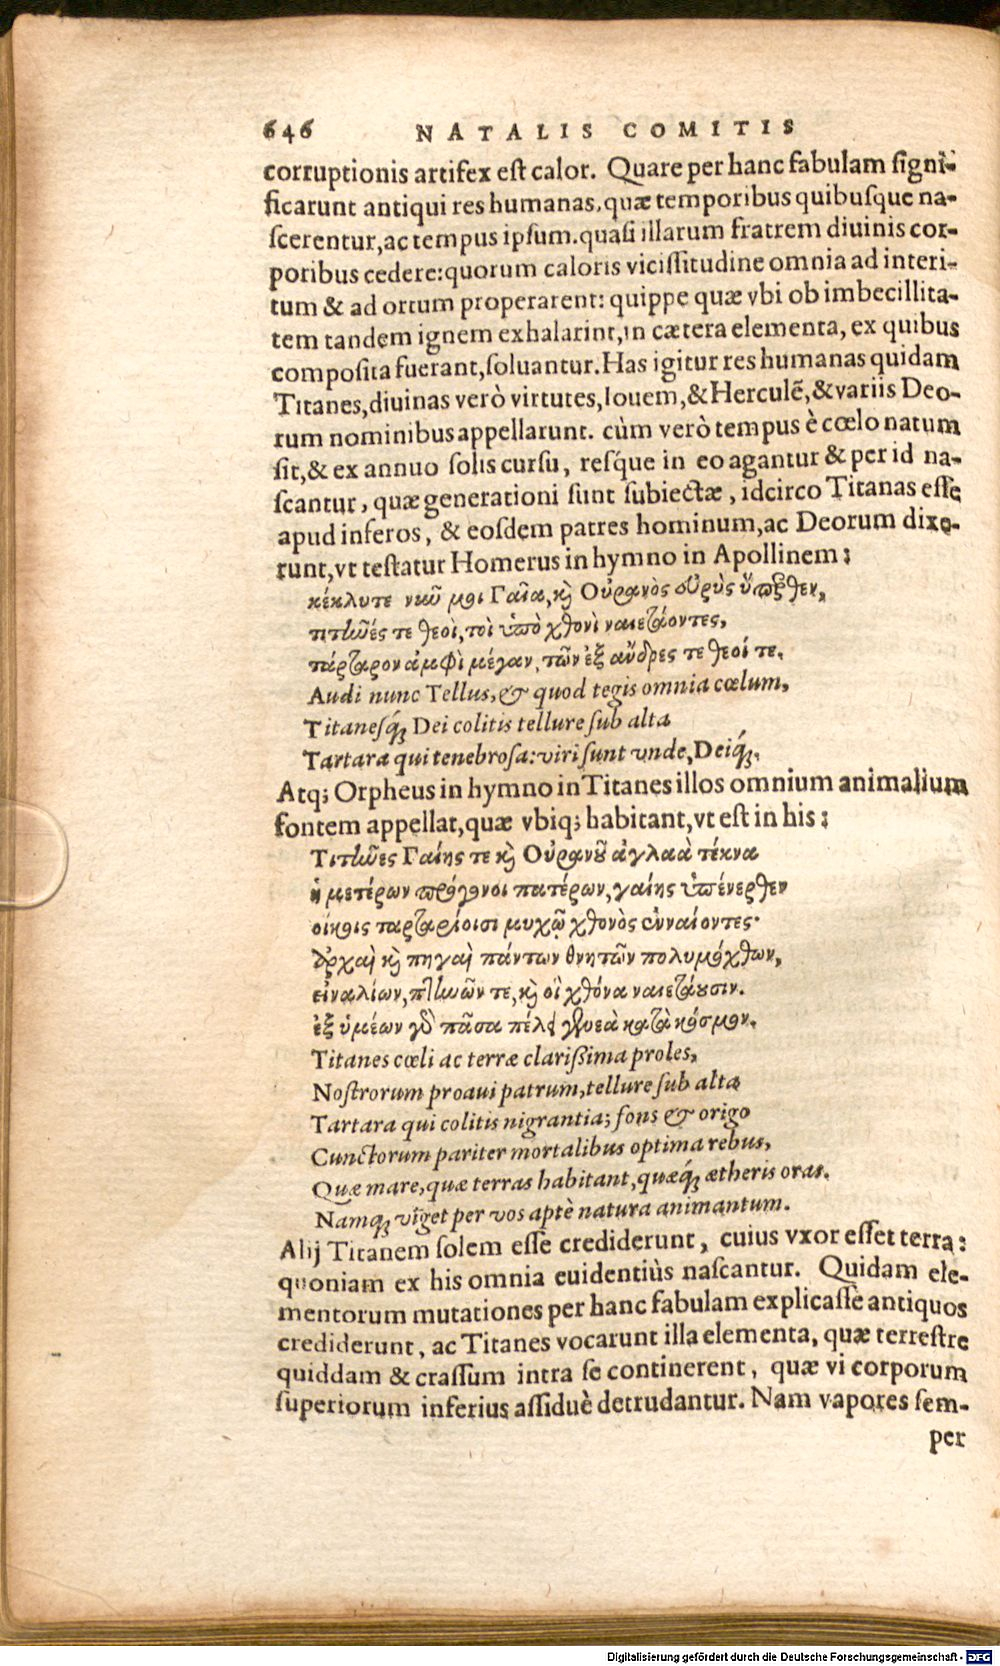 646 NATALIS COMITIS
corruptionis artifex est calor. Quare per hanc fabulam signi-
ficarunt antiqui res humanas, quæ temporibus quibusque na-
scerentur, ac tempus ipsum. quasi illarum fratrem diuinis cor-
poribus cedere: quorum caloris vicissitudine omnia ad interi-
tum & ad ortum properarent: quippe quæ vbi ob imbecillita-
tem tandem ignem exhalarint, in cætera elementa, ex quibus
composita fuerant, soluantur. Has igitur res humanas quidam
Titanes, diuinas verò virtutes, Iouem, & Herculē, & variis Deo-
rum nominibus appellarunt. cùm verò tempus è cœlo natum
sit, & ex annuo solis cursu, resq́ue in eo agantur & per id na-
scantur, quæ generationi sunt subiectæ, idcirco Titanas esse
apud inferos, & eosdem patres hominum, ac Deorum dixe-
runt, vt testatur Homerus in hymno in Apollinem:
κέκλυτε νῦν μοι Γαῖα, καὶ Οὐρανὸς εὐρὺς ὕπερθεν,
τιτῆνές τε θεοὶ, τοὶ ὑπὸ χθονὶ ναιετάοντες,
τάρταρον ἀμφὶ μέγαν, τῶν ἐξ ἄνδρες τε θεοί τε.
Audi nunc Tellus, & quod tegis omnia cœlum,
Titanesq́; Dei colitis tellure sub alta
Tartara qui tenebrosa: viri sunt vnde, Deiq́;.
Atq; Orpheus in hymno in Titanes illos omnium animalium
fontem appellat, quæ vbiq; habitant, vt est in his:
Τιτῆνες Γαίης τε καὶ Οὐρανοῦ ἀγλαὰ τέκνα
ἡμετέρων πρόγονοι πατέρων, γαίης ὑπένερθεν
οἴκοις ταρταρίοισι μυχῷ χθονὸς ἐνναίοντες·
ἀρχαὶ καὶ πηγαὶ πάντων θνητῶν πολυμόχθων,
εἰναλίων, πτηνῶν τε, καὶ οἳ χθόνα ναιετάουσιν.
ἐξ ὑμέων γὰρ πᾶσα πέλει γενεὰ κατὰ κόσμον.
Titanes cœli ac terræ clarissima proles,
Nostrorum proaui patrum, tellure sub alta
Tartara qui colitis nigrantia; fons & origo
Cunctorum pariter mortalibus optima rebus,
Quæ mare, quæ terras habitant, quæq́; ætheris oras.
Namq; viget per vos aptè natura animantum.
Alij Titanem solem esse crediderunt, cuius vxor esset terra:
quoniam ex his omnia euidentiùs nascantur. Quidam ele-
mentorum mutationes per hanc fabulam explicasse antiquos
crediderunt, ac Titanes vocarunt illa elementa, quæ terrestre
quiddam & crassum intra se continerent, quæ vi corporum
superiorum inferius assiduè detrudantur. Nam vapores sem-
per
Digitalisierung gefördert durch die Deutsche Forschungsgemeinschaft - DFG